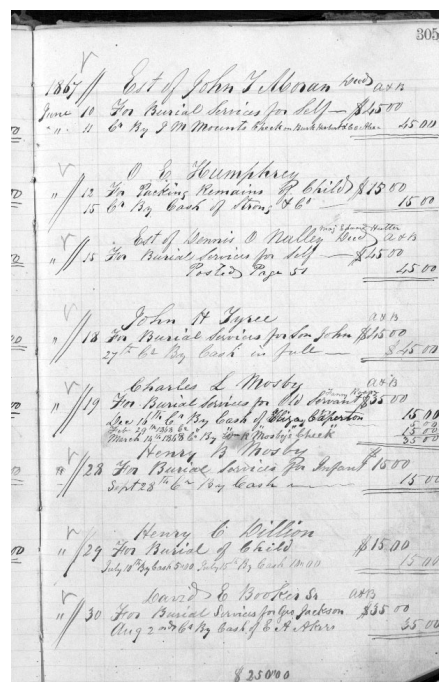 305
1867 Est of John T Moran Decd A&B
June 10 For Burial Services for Self — $45.00
" " 11 Cr By J M Mounts Check on Bank 45.00
O E Humphrey
" 12 For Packing Remains of Child $15.00
15 Cr By Cash of Strong & Co 15.00
Est of Dennis O Nulley Decd A&B
" 15 For Burial Services for Self — $45.00
Posted Page 51 45.00
John H Tyree A&B
" 18 For Burial Services for Son John $45.00
27th Cr By Cash in full — $45.00
Charles L Mosby A&B
" 19 For Burial Services for Old Servant $35.00
Dec 18th Cr By Cash of Eliza Claperton 15.00
Feb 29th 1868 Cr " " " 5.00
March 14th 1868 Cr By W R Mosby's Check 15.00
35.00
Henry B Mosby
" 28 For Burial Services for Infant $15.00
Sept 28th Cr By Cash — 15.00
Henry C Dillion
" 29 For Burial of Child $15.00
July 10th By Cash 5.00 July 15th By Cash 10.00 15.00
David E Booker Sr A&B
" 30 For Burial Services for Geo Jackson $35.00
Aug 2nd Cr By Cash of E A Akers 35.00
$250.00